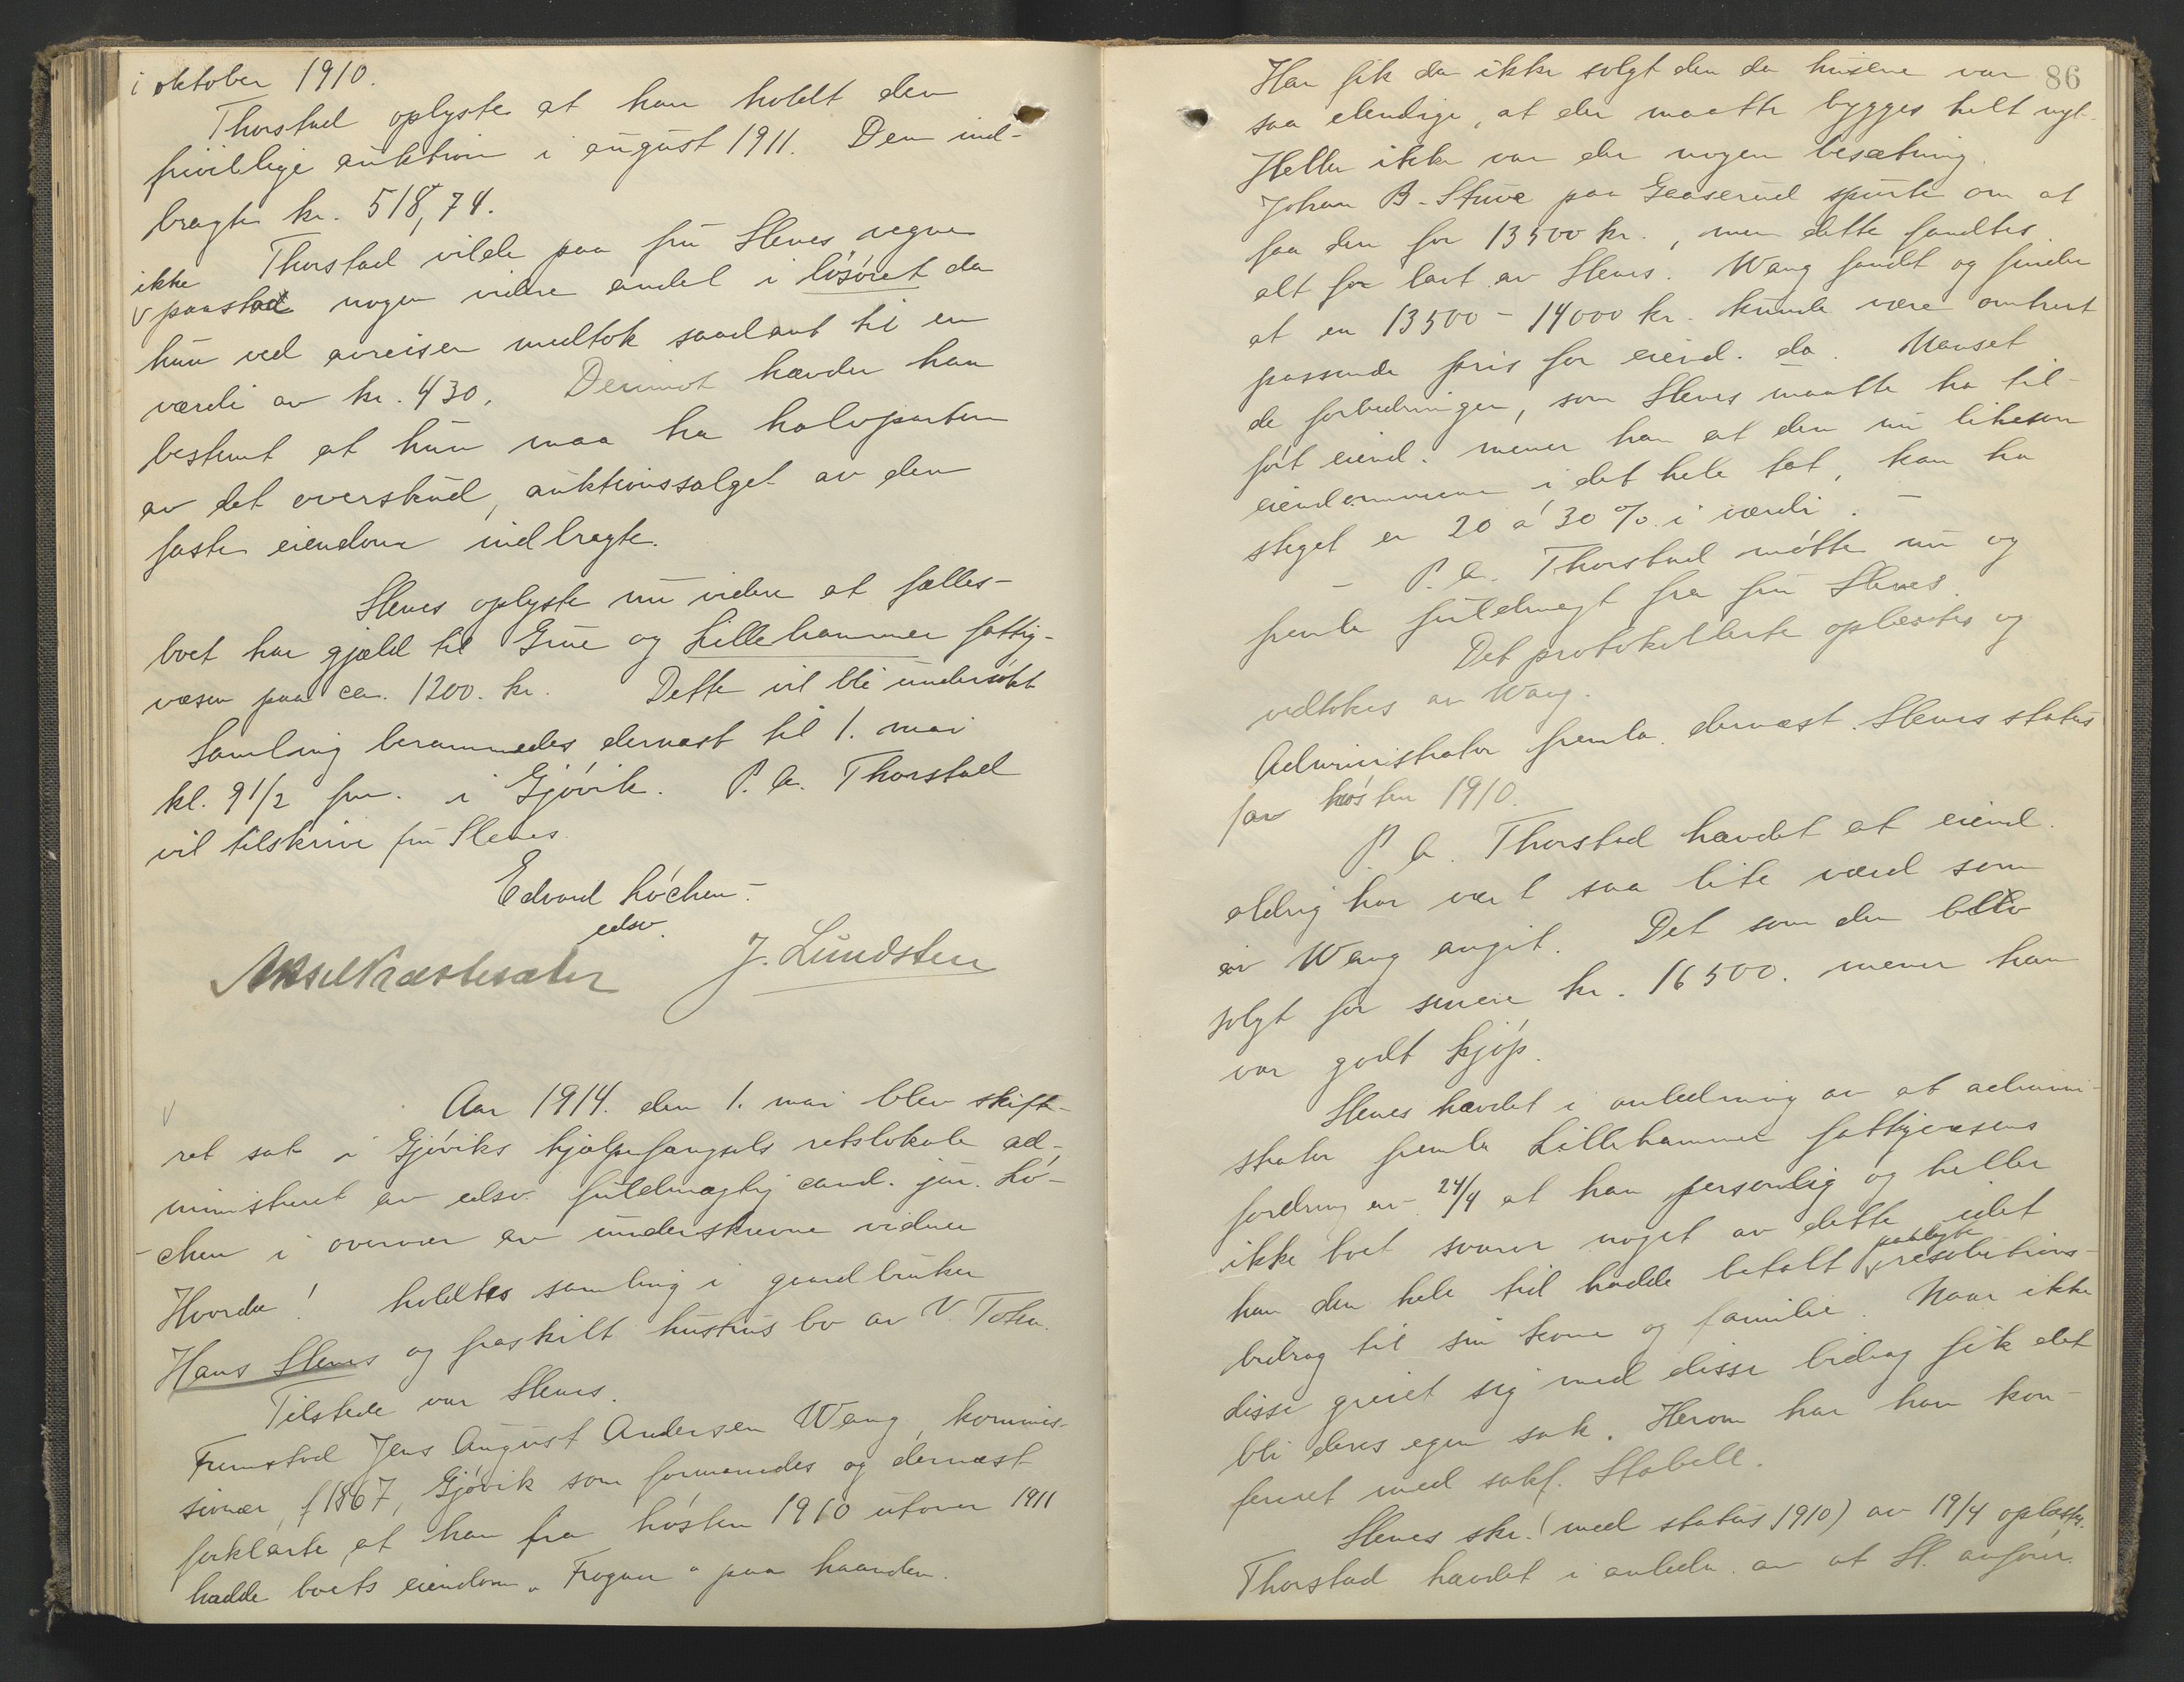 i oktober 1910.
Thorstad oplyste at han holdt den
frivillige auktion i august 1911. Den ind-
bragte kr. 518,74.
Thorstad vilde paa fru Stenes vegne
ikke
paastaa nogen videre andel i løsøret da
hun ved avreisen medtok saadant til en
værdi av kr. 430. Derimot hævder han
bestemt at hun maa ha halvparten
av det overskud, auktionssalget av den
faste eiendom indbragte.
Stenes oplyste nu videre at fælles-
boet har gjæld til Grue og Lillehammer fattig-
væsen paa ca. 1200. kr. Dette vil bli undersøkt
Samling berammedes dernæst til 1. mai
kl. 9 1/2 fm. i Gjøvik. P. A. Thorstad
vil tilskrive fru Stenes.
Edvard Løchen.
edsv.
J. Lundsten
Aar 1914. den 1. mai blev skifte-
ret sat i Gjøviks hjælpefængsels retslokale ad-
ministreret av edsv. fuldmægtig cand. jur. Lø-
chen i overvær av underskrevne vidner
Hvorda! holdtes samling i gaardbruker
Hans Stenes og fraskilt hustrus bo av V. Toten.
Tilstede var Stenes.
Fremstod Jens August Andersen Wang, kommis-
sionær, f 1867, Gjøvik som formanedes og dernæst
forklarte at han fra høsten 1910 utover 1911
hadde boets eiendom „Frogner“ paa haanden.
86
Han fik da ikke solgt den da husene var
saa elendige, at der maatte bygges helt nyt.
Heller ikke var der nogen besætning.
Johan B. Stuve paa Gaaserud spurte om at
faa den for 13500 kr., men dette fandtes
alt for lavt av Stenes. Wang fandt og finder
at en 13500 - 14000 kr. kunde være omtrent
passende pris for eiend. da. Uanset
de forbedringer, som Stenes maatte ha til-
ført eiend. mener han at den nu likesom
eiendommene i det hele tat, kan ha
steget en 20 à 30 % i værdi. -
- P. A. Thorstad møtte nu og
fremla fuldmagt fra fru Stenes.
Det protokollerte oplæstes og
vedtokes av Wang.
Administrator fremla dernæst Stenes status
for høsten 1910.
P. A. Thorstad hævdet at eiend.
aldrig har vært saa lite værd som
av Wang angit. Det som den blev
solgt for senere kr. 16500. mener han
var godt kjøp.
Stenes hævdet i anledning av at admini-
strator fremla Lillehammer fattigvæsens
fordring av 24/4 at han personlig og heller
ikke boet svarer noget av dette idet
paalagte
han den hele tid hadde betalt resolutions-
bidrag til sin kone og familie. Naar ikke
disse greiet sig med disse bidrag fik det
bli deres egen sak. Herom har han kon-
ferert med sakf. Stabell.
Stenes skr. (med status 1910) av 19/4 oplæstes.
Thorstad hævdet i anledn. av at St. anfører